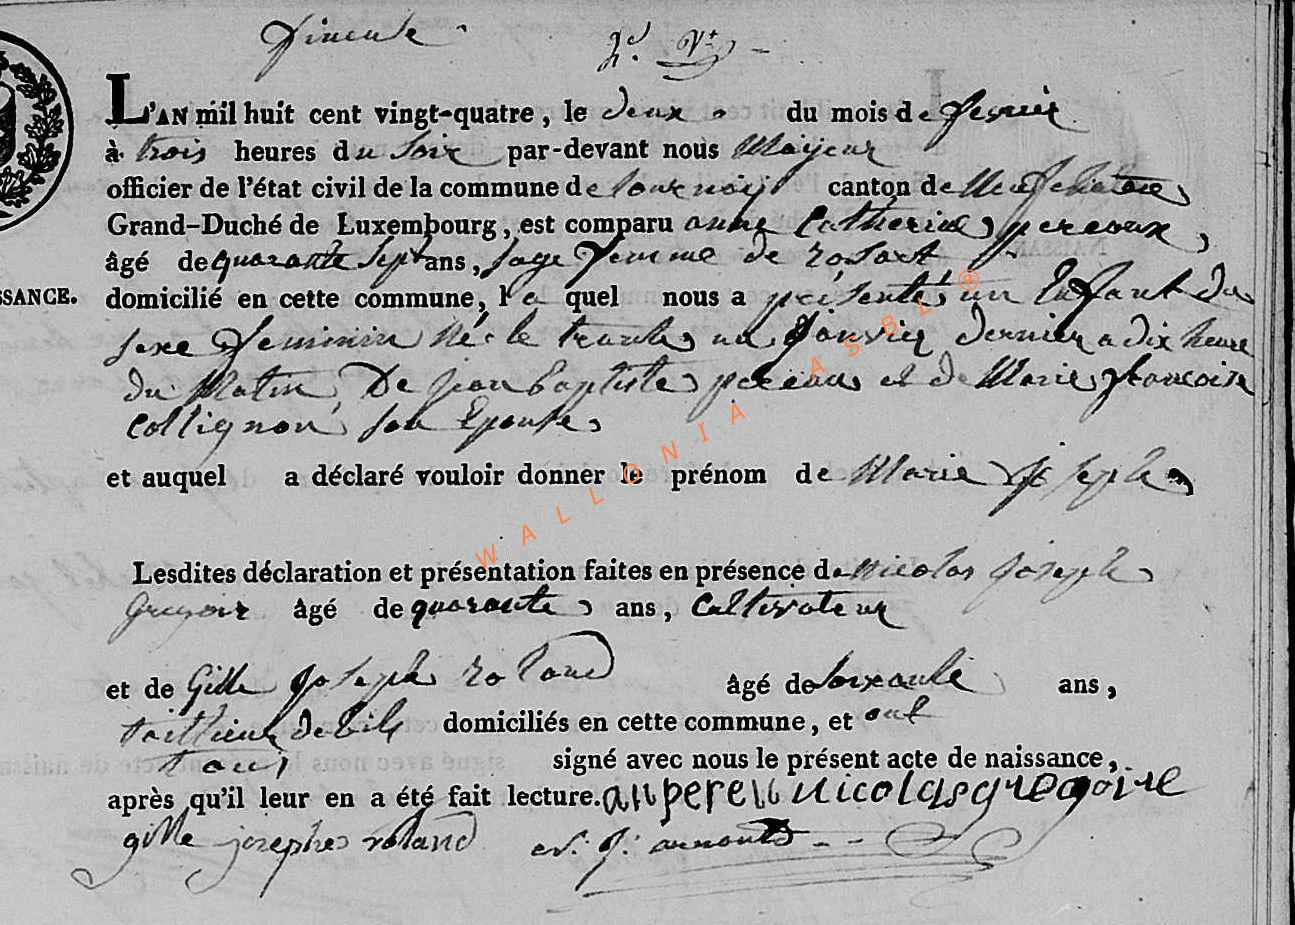 2d. Vt.
L'AN mil huit cent vingt-quatre, le deux du mois de fevrier
à trois heures du soir par-devant nous Mayeur
officier de l'état civil de la commune de tournay canton de Neufchateau
Grand-Duché de Luxembourg, est comparu anne Catherine pereaux,
âgé de quarante sept ans, sage femme de rosart
SSANCE. domicilié en cette commune, la quel nous a présenté un Enfant du
sexe feminin né le trente un Janvier dernier a dix heure
du Matin, De jean baptiste pereau et de Marie francoise
Collignon son Epouse
et auquel a déclaré vouloir donner le prénom de Marie Joseph
Lesdites déclaration et présentation faites en présence de nicolas joseph
Gregoir âgé de quarante ans, Cultivateur
et de Gille joseph roland âgé de soixante ans,
domiciliés en cette commune, et ont
tous signé avec nous le présent acte de naissance,
après qu'il leur en a été fait lecture. anpereu nicolasgregoire
gille josephe roland
WALLONIA ASBL ®